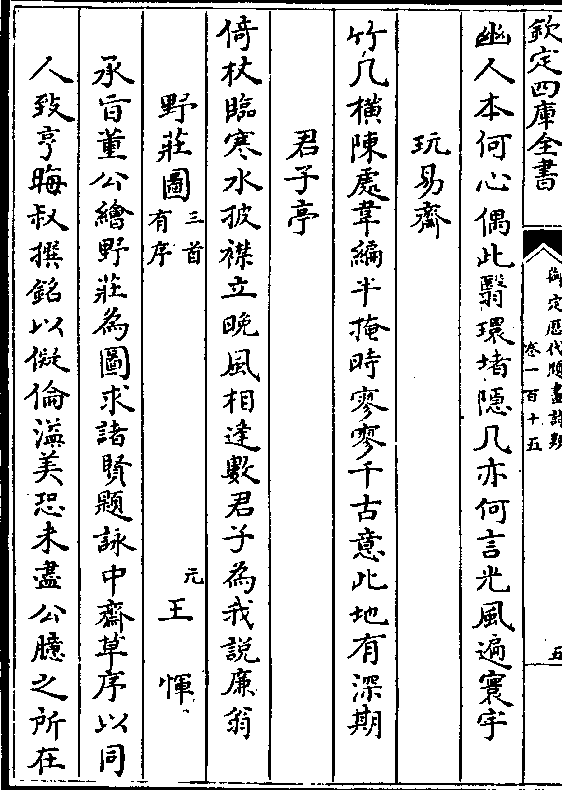 欽定四庫全書
御定歷代題畫詩類
卷一百十五
五
幽人本何心偶此翳環堵隱几亦何言光風遍寰宇
玩易齋
竹几橫陳處韋編半掩時寥寥千古意此地有深期
君子亭
倚杖臨寒水披襟立晚風相逢數君子為我說廉翁
野莊圖三首有序
元王惲
承旨董公繪野莊為圖求諸賢題詠中齋草序以同
人致亨晦叔撰銘以儗倫溢美恐未盡公臆之所在